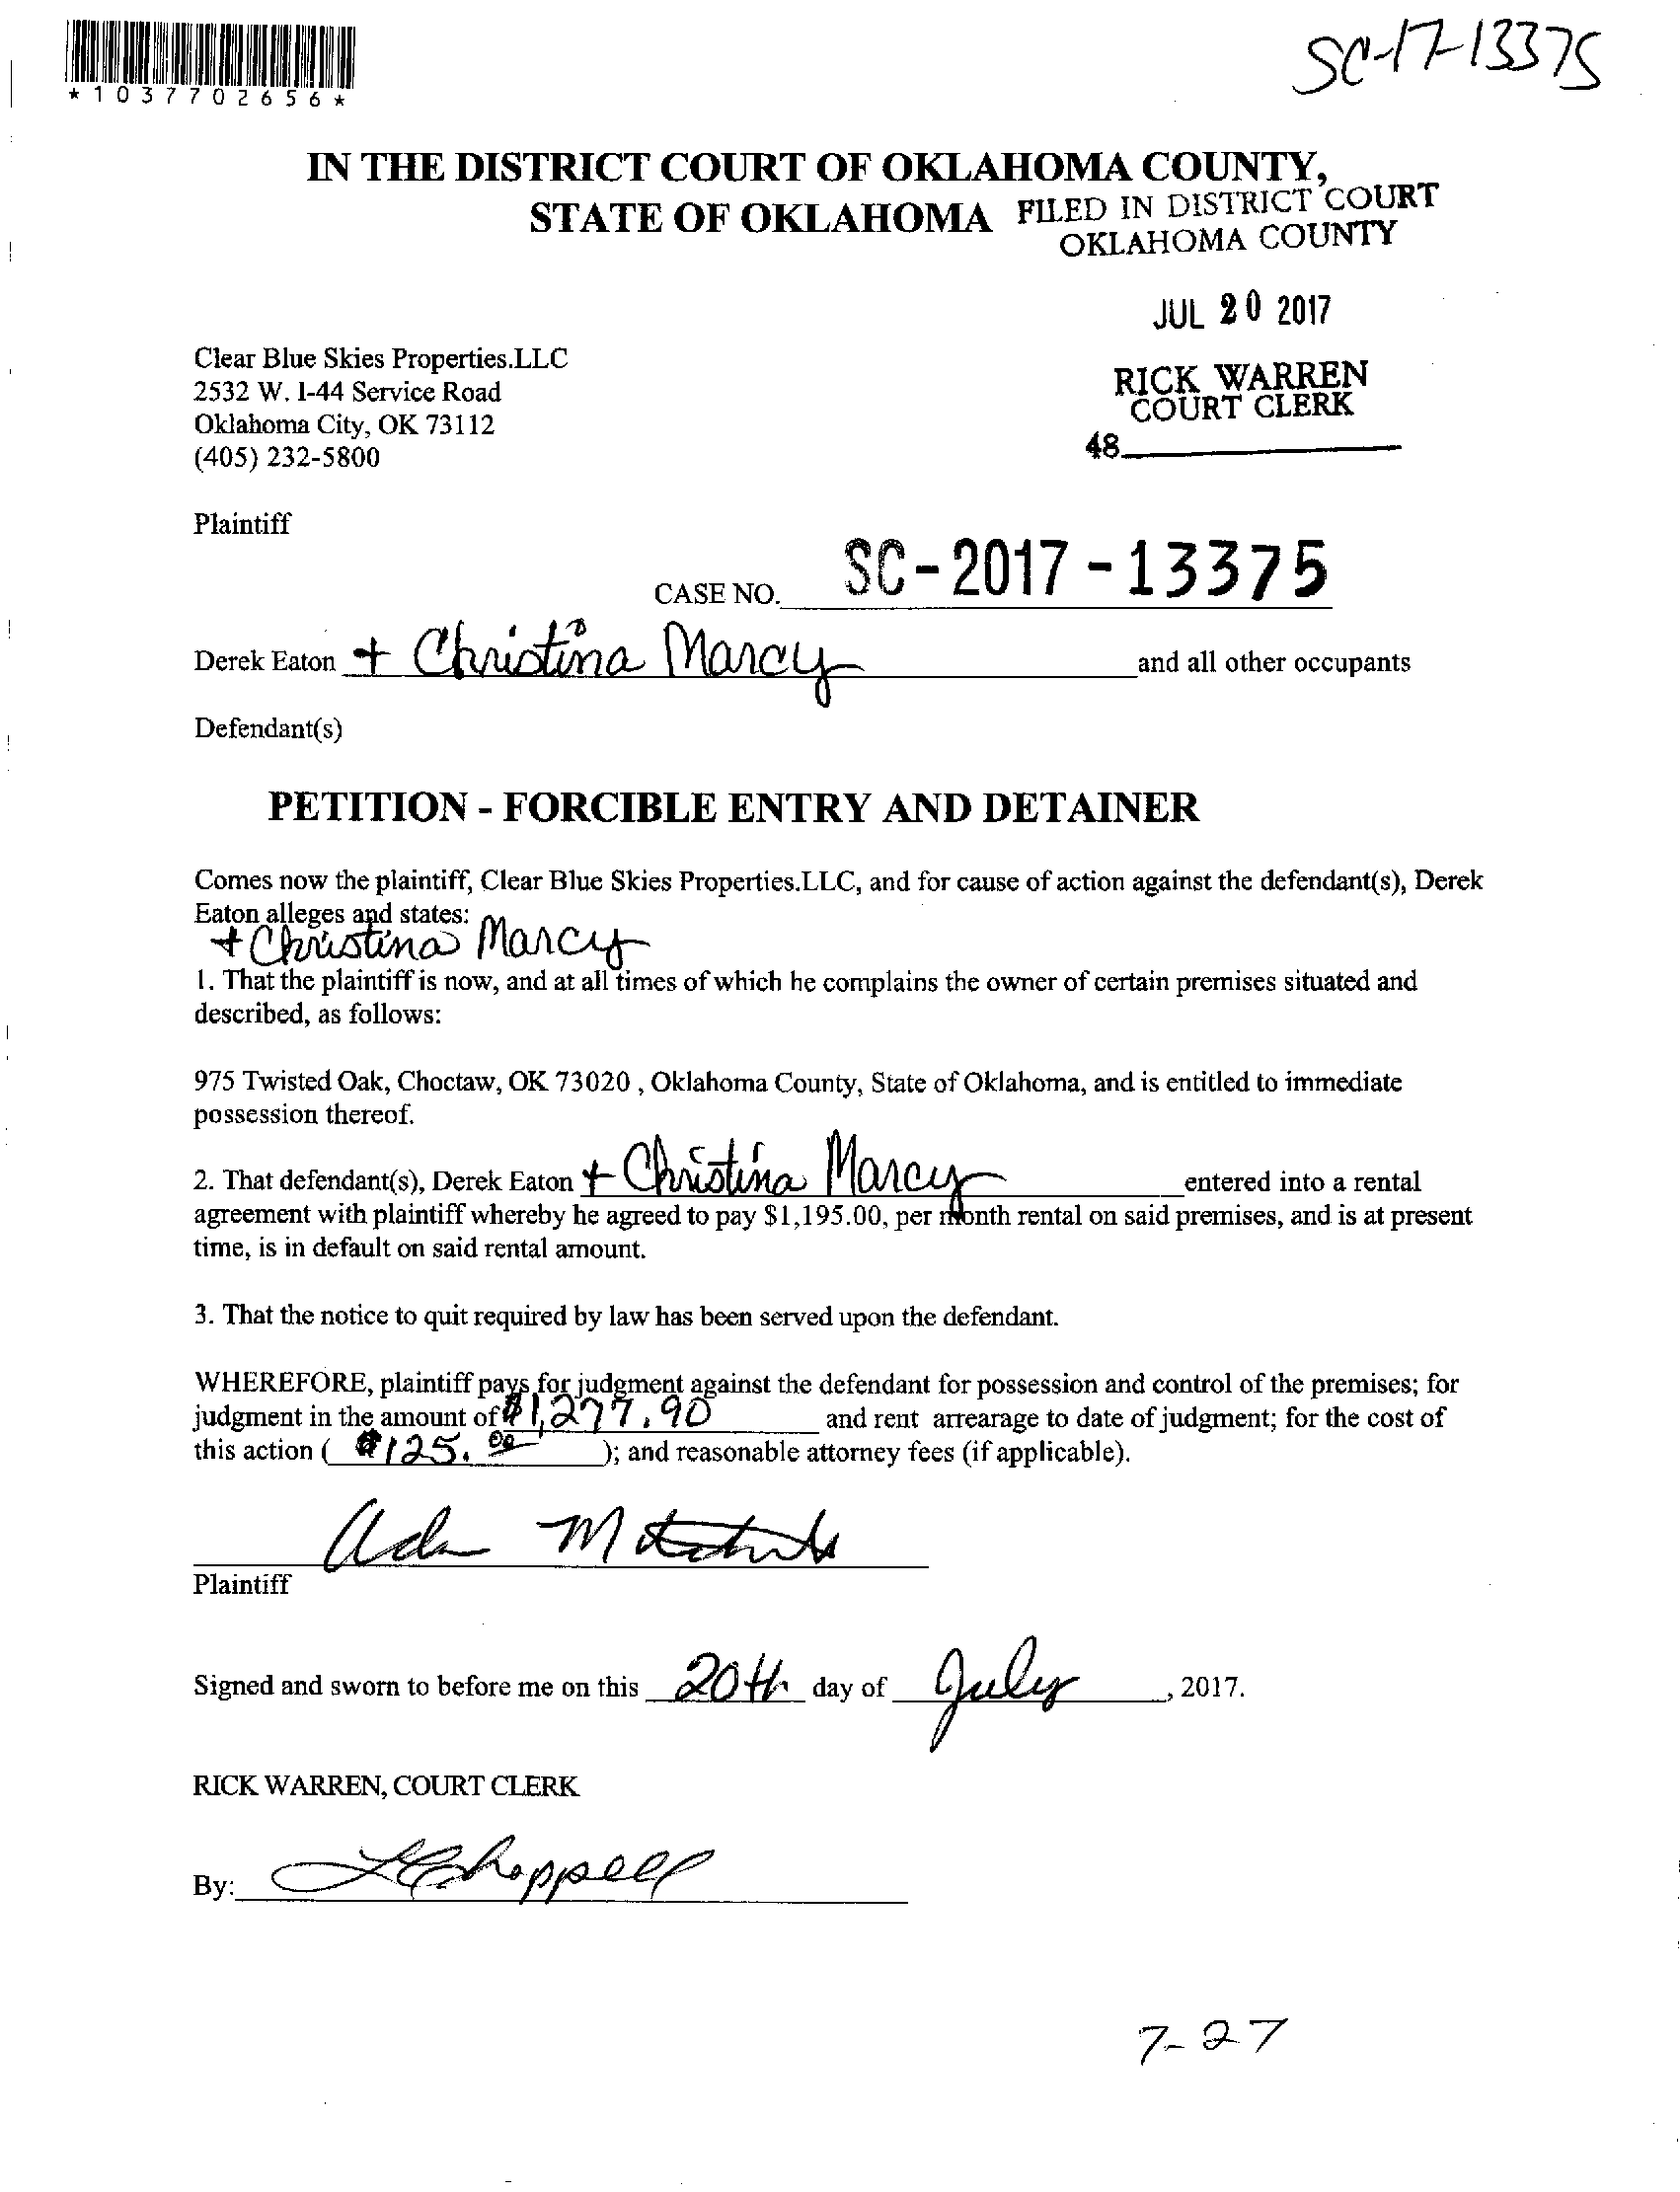 *1037702656*
SC-17-13375
IN THE DISTRICT COURT OF OKLAHOMA COUNTY,
STATE OF OKLAHOMA
FILED IN DISTRICT COURT
OKLAHOMA COUNTY
JUL 20 2017
RICK WARREN
COURT CLERK
48
Clear Blue Skies Properties.LLC
2532 W. I-44 Service Road
Oklahoma City, OK 73112
(405) 232-5800
Plaintiff
CASE NO. SC-2017-13375
Derek Eaton + Christina Marcy and all other occupants
Defendant(s)
PETITION - FORCIBLE ENTRY AND DETAINER
Comes now the plaintiff, Clear Blue Skies Properties.LLC, and for cause of action against the defendant(s), Derek
Eaton alleges and states:
+ Christina Marcy
1. That the plaintiff is now, and at all times of which he complains the owner of certain premises situated and
described, as follows:
975 Twisted Oak, Choctaw, OK 73020 , Oklahoma County, State of Oklahoma, and is entitled to immediate
possession thereof.
2. That defendant(s), Derek Eaton + Christina Marcy entered into a rental
agreement with plaintiff whereby he agreed to pay $1,195.00, per month rental on said premises, and is at present
time, is in default on said rental amount.
3. That the notice to quit required by law has been served upon the defendant.
WHEREFORE, plaintiff pays for judgment against the defendant for possession and control of the premises; for
judgment in the amount of $1,277.90 and rent arrearage to date of judgment; for the cost of
this action ( $125.00 ); and reasonable attorney fees (if applicable).
Plaintiff
Signed and sworn to before me on this 20th day of July, 2017.
RICK WARREN, COURT CLERK
By:
7-27